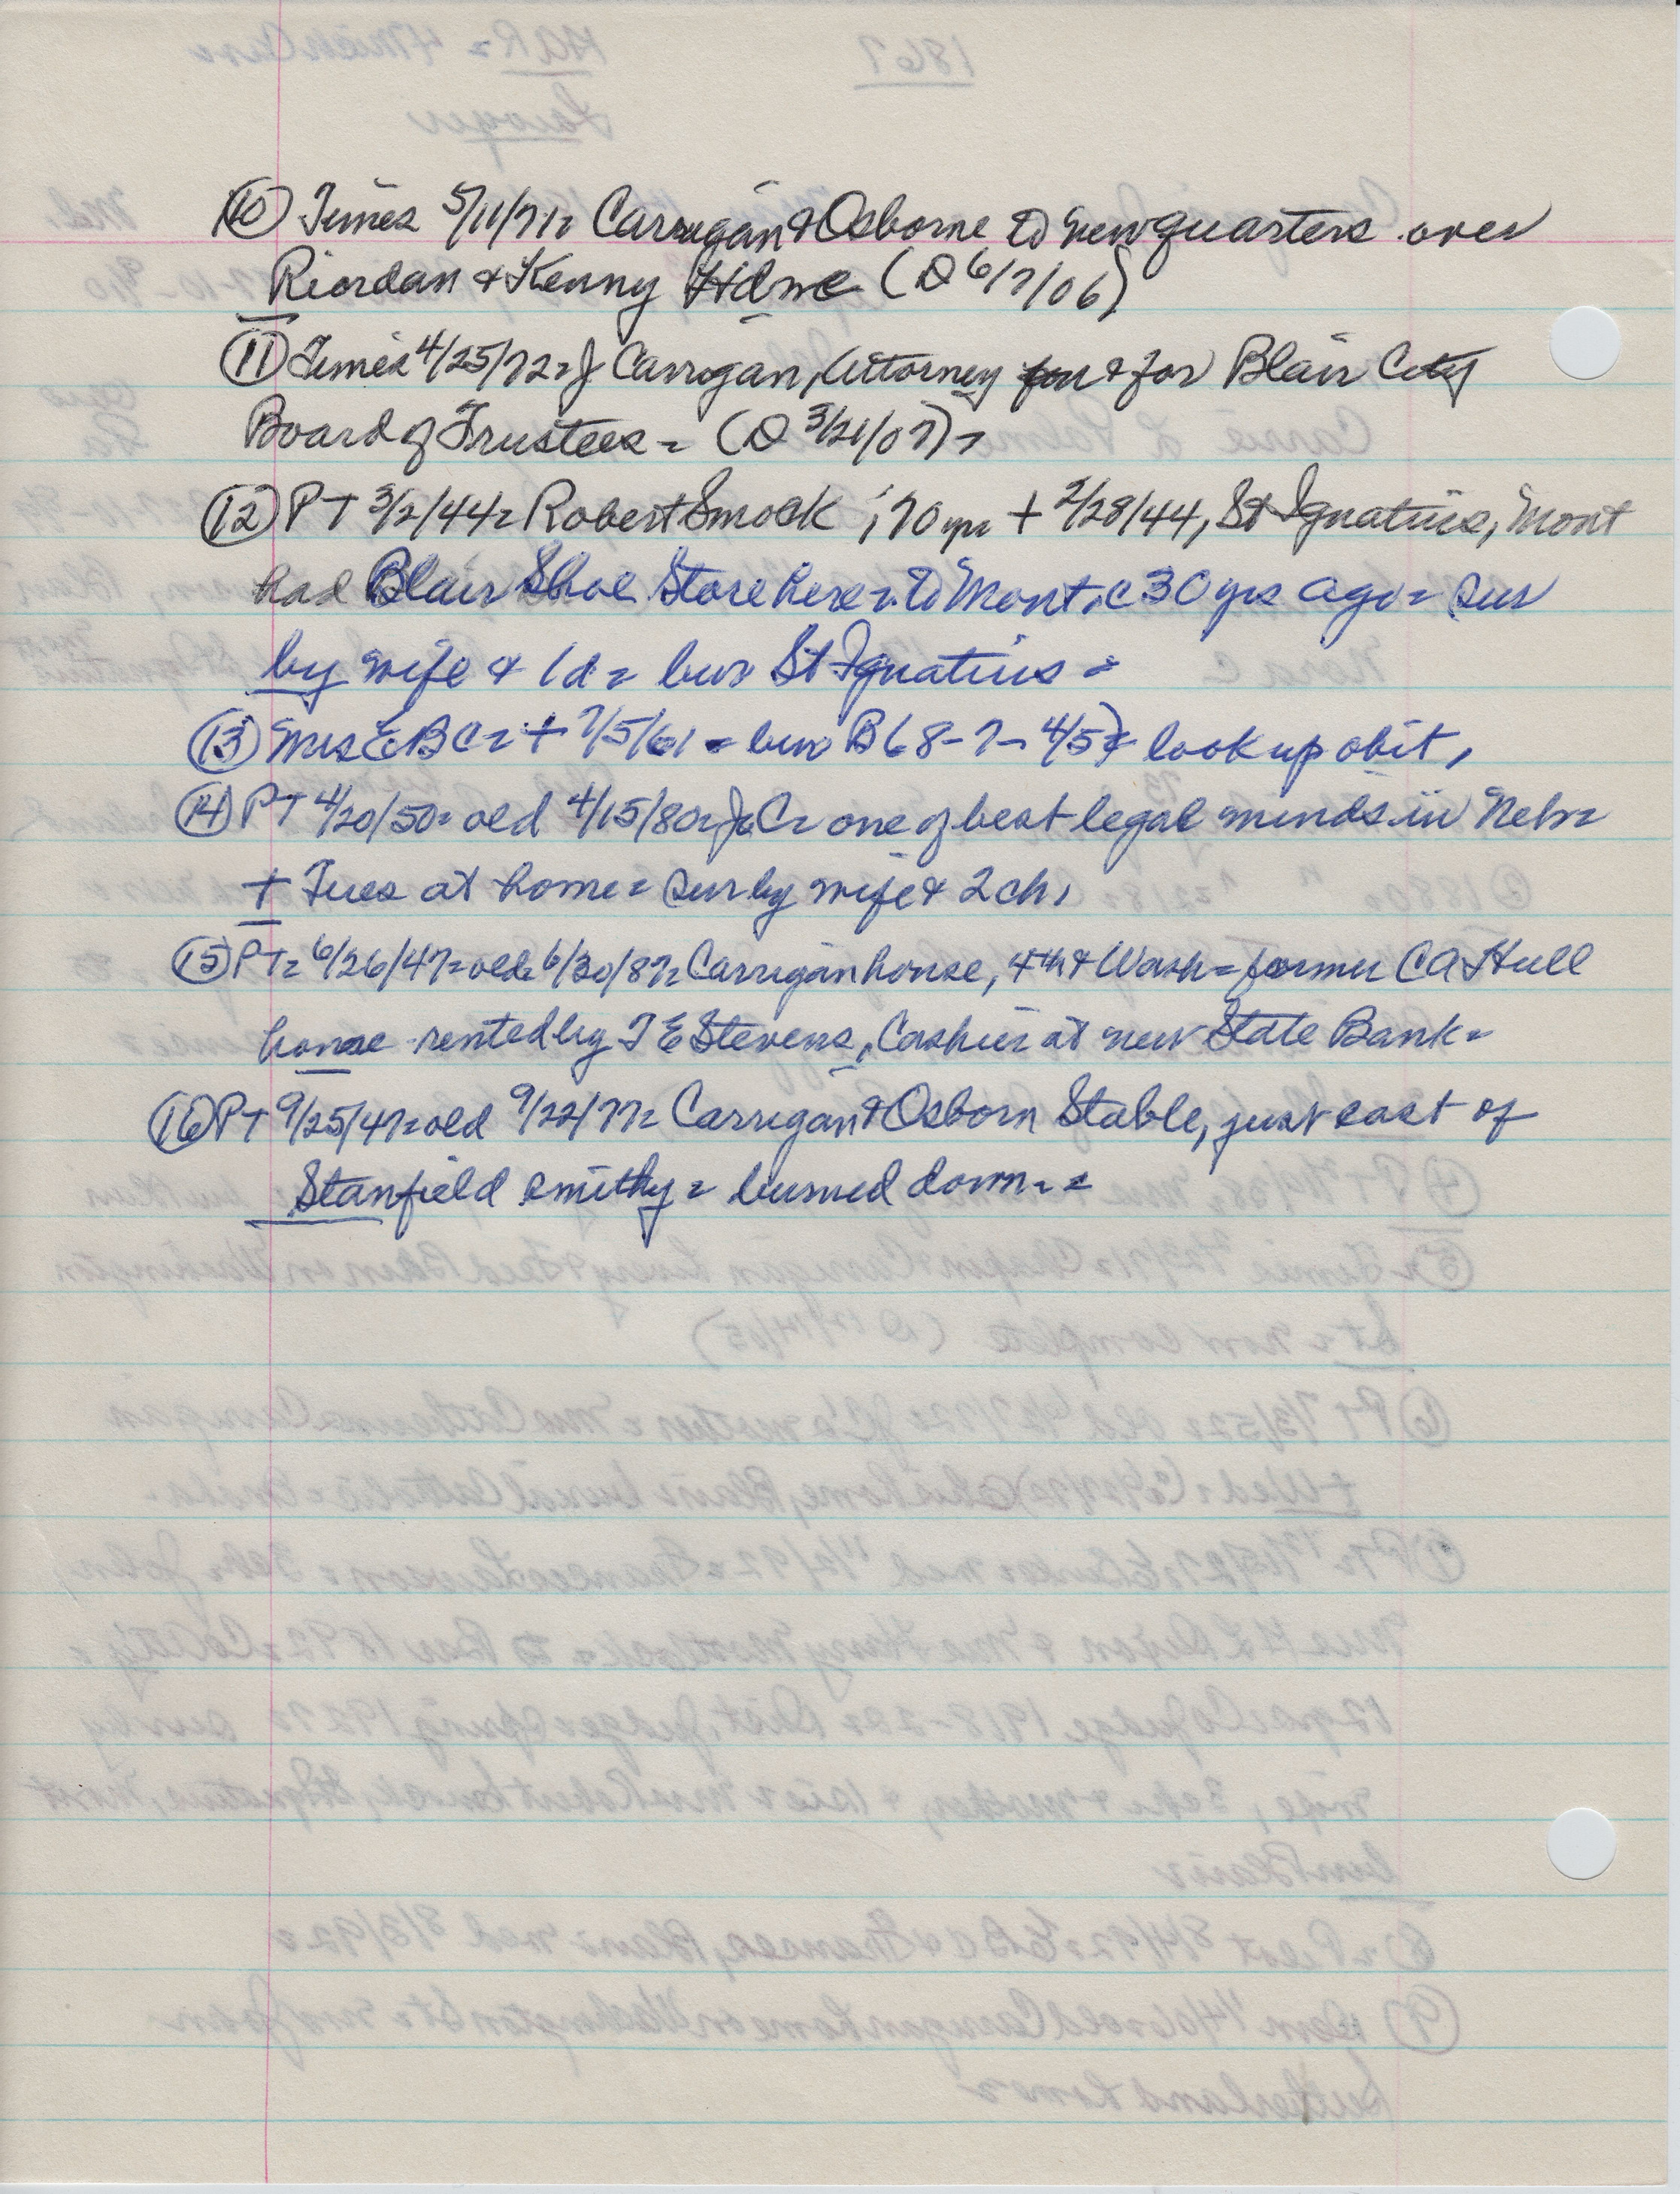 ⑩ Times 5/11/71= Carrigan & Osborne to new quarters over
Riordan & Kenny Hdwe (D 6/7/06)
⑪ Times 4/25/72= J Carrigan, Attorney for Blair City
Board of Trustees = (D 3/21/07) =
⑫ PT 3/2/44= Robert Smock, 70 yrs + 2/28/44, St Ignatius, Mont
had Blair Shoe Store here = to Mont. c 30 yrs ago = sur
by wife & 1d = bur St Ignatius =
⑬ Mrs E B C = + 7/5/61 = bur B 68-7- 4/5 = look up obit,
⑭ PT 4/20/50= old 4/15/80= J C = one of best legal minds in Nebr
+ Tues at home = sur by wife & 2 ch,
⑮ PT= 6/26/47= old= 6/30/87= Carrigan house, 4th & Wash = former C A Hull
house rented by T E Stevens, Cashier at new State Bank =
⑯ PT 9/25/47= old 9/22/77= Carrigan & Osborn Stable, just east of
Stanfield smithy = burned down. =